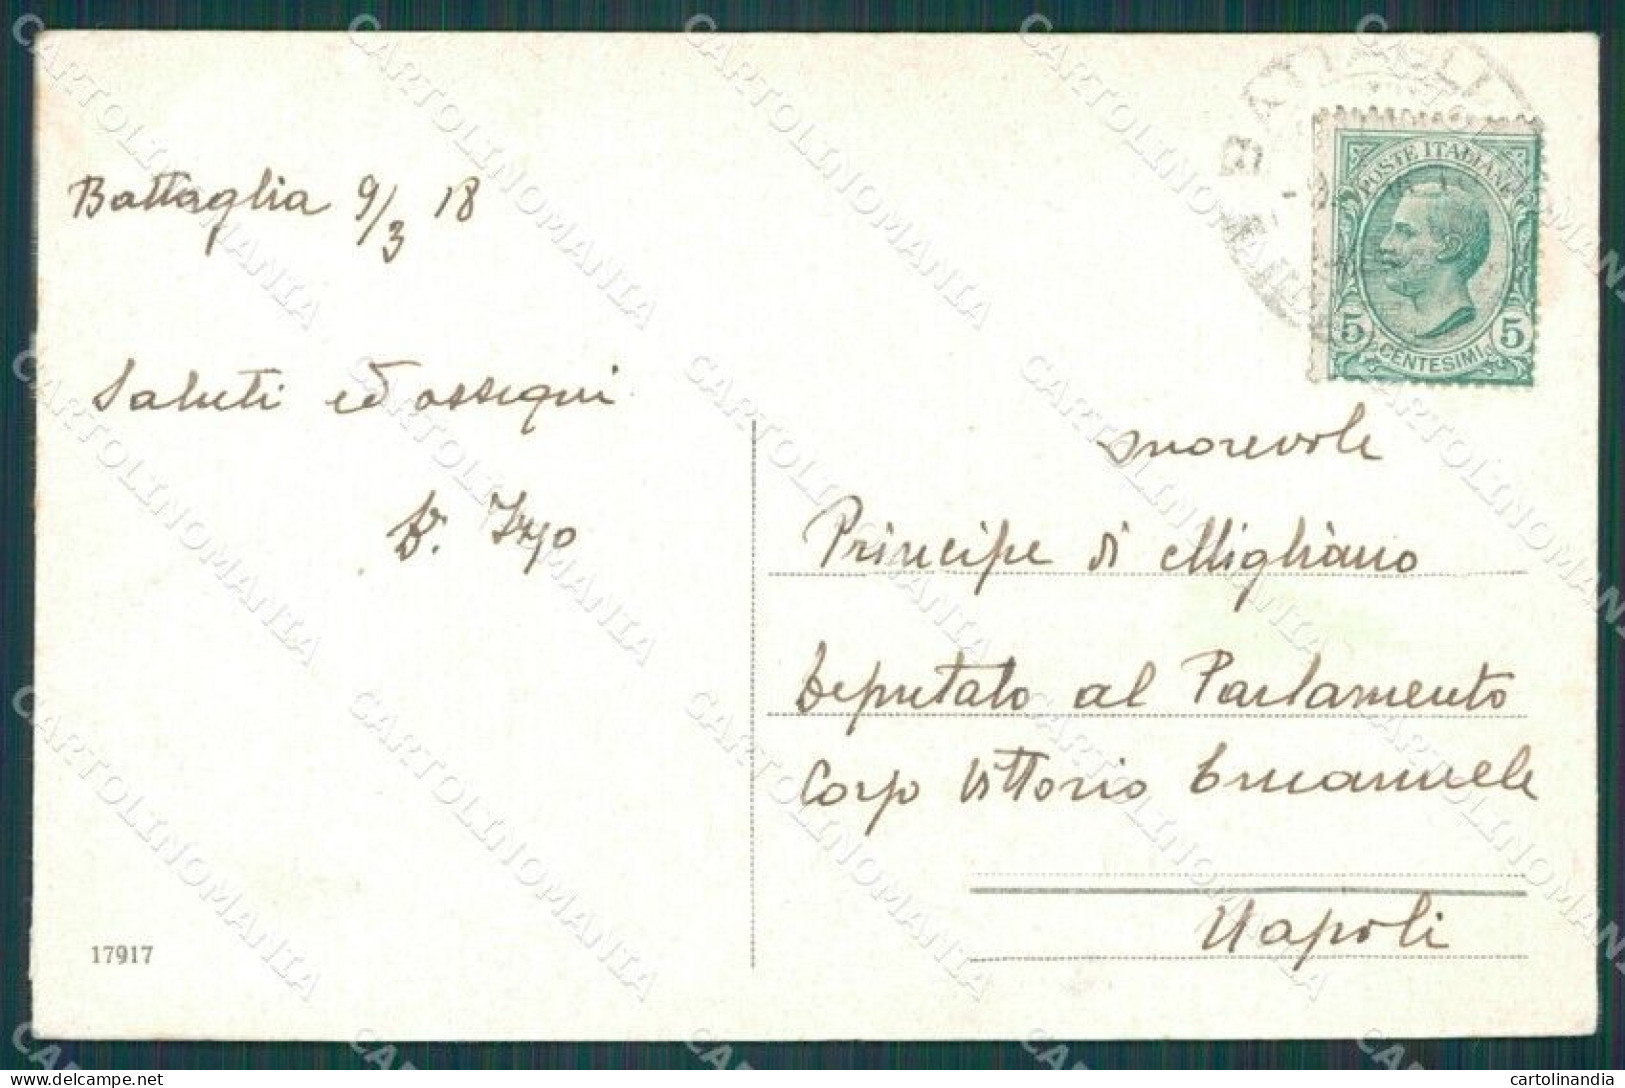 Battaglia 9/3 18
Saluti ed ossequi
Izzo
BATTAGLI
POSTE ITALIANE
5 CENTESIMI 5
Principe di Migliano
Deputato al Parlamento
Corso Vittorio Emanuele
Napoli
17917
CARTOLINOMANIA
www.delcampe.net
cartolinandia